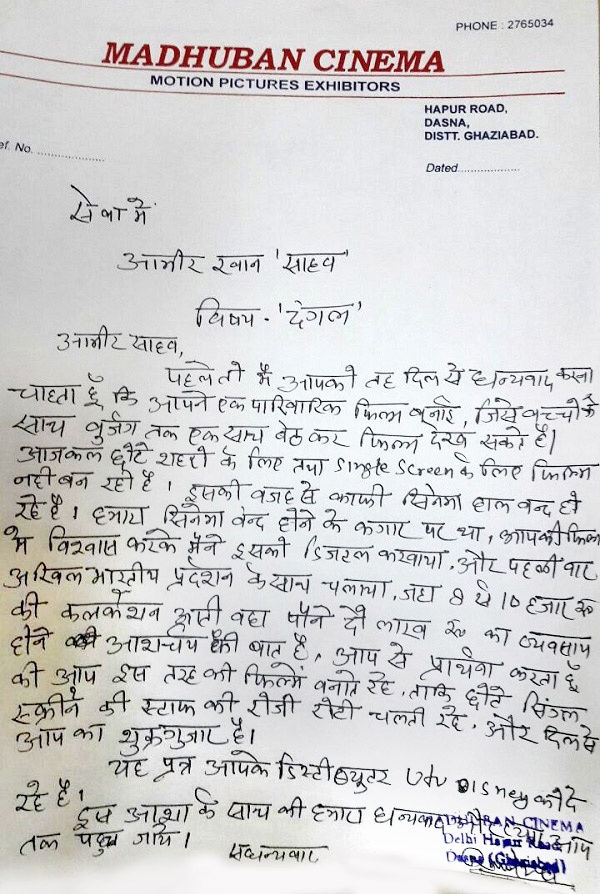 PHONE : 2765034
MADHUBAN CINEMA
MOTION PICTURES EXHIBITORS
HAPUR ROAD,
DASNA,
DISTT. GHAZIABAD.
ef. No. ...................
Dated...................
सेवा में
आमीर खान 'साहब'
विषय - 'दंगल'
आमीर साहब,
पहले तो मैं आपको तह दिल से धन्यवाद करना
चाहता हूँ कि आपने एक पारिवारिक फिल्म बनाई, जिसे बच्चो के
साथ बुर्जग तक एक साथ बैठ कर फिल्म देख सकते है।
आजकल छोटे शहरो के लिए तथा single screen के लिए फिल्म
नही बन रही है। इसकी वजह से काफी सिनेमा हाल बन्द हो
रहे है। हमारा सिनेमा बन्द होने के कगार पर था, आपकी फिल्म
मे विश्वास करके मैने इसको डिजटल करवाया, और पहली बार
अखिल भारतीय प्रर्दशन के साथ चलाया, जहा 8 से 10 हजार रू
की कलकेशन आती वहा पौने दो लाख रू का व्यवसाय
होने आशर्चय की बात है, आप से प्रार्थना करता हूँ
की आप इस तरह की फिल्मे बनाते रहे, ताकि छोटे सिंगल
स्क्रीन की स्टाफ की रोजी रोटी चलती रहे, और दिल से
आप का शुक्रगुजार है।
यह पत्र आपके डिस्टीब्यूटर Utv Disney को दे
रहे है।
इस आशा के साथ की हमारा धन्यवाद आप
तक पहुच जाये।
MADHUBAN CINEMA
Delhi Hapur Road
Dasna (Ghaziabad)
सधन्यवाद